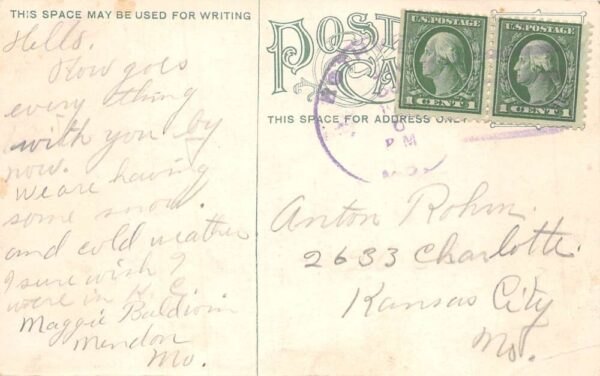 THIS SPACE MAY BE USED FOR WRITING
Hello.
How goes
every thing
with you by
now.
we are having
some snow
and cold weather
I sure wish I
were in K. C.
Maggie Baldwin
Mendon
Mo.
POST CARD
THIS SPACE FOR ADDRESS ONLY
U.S. POSTAGE
1 CENT 1
U.S. POSTAGE
1 CENT 1
PM
MO.
Anton Rohm.
2633 Charlotte.
Kansas City
Mo.